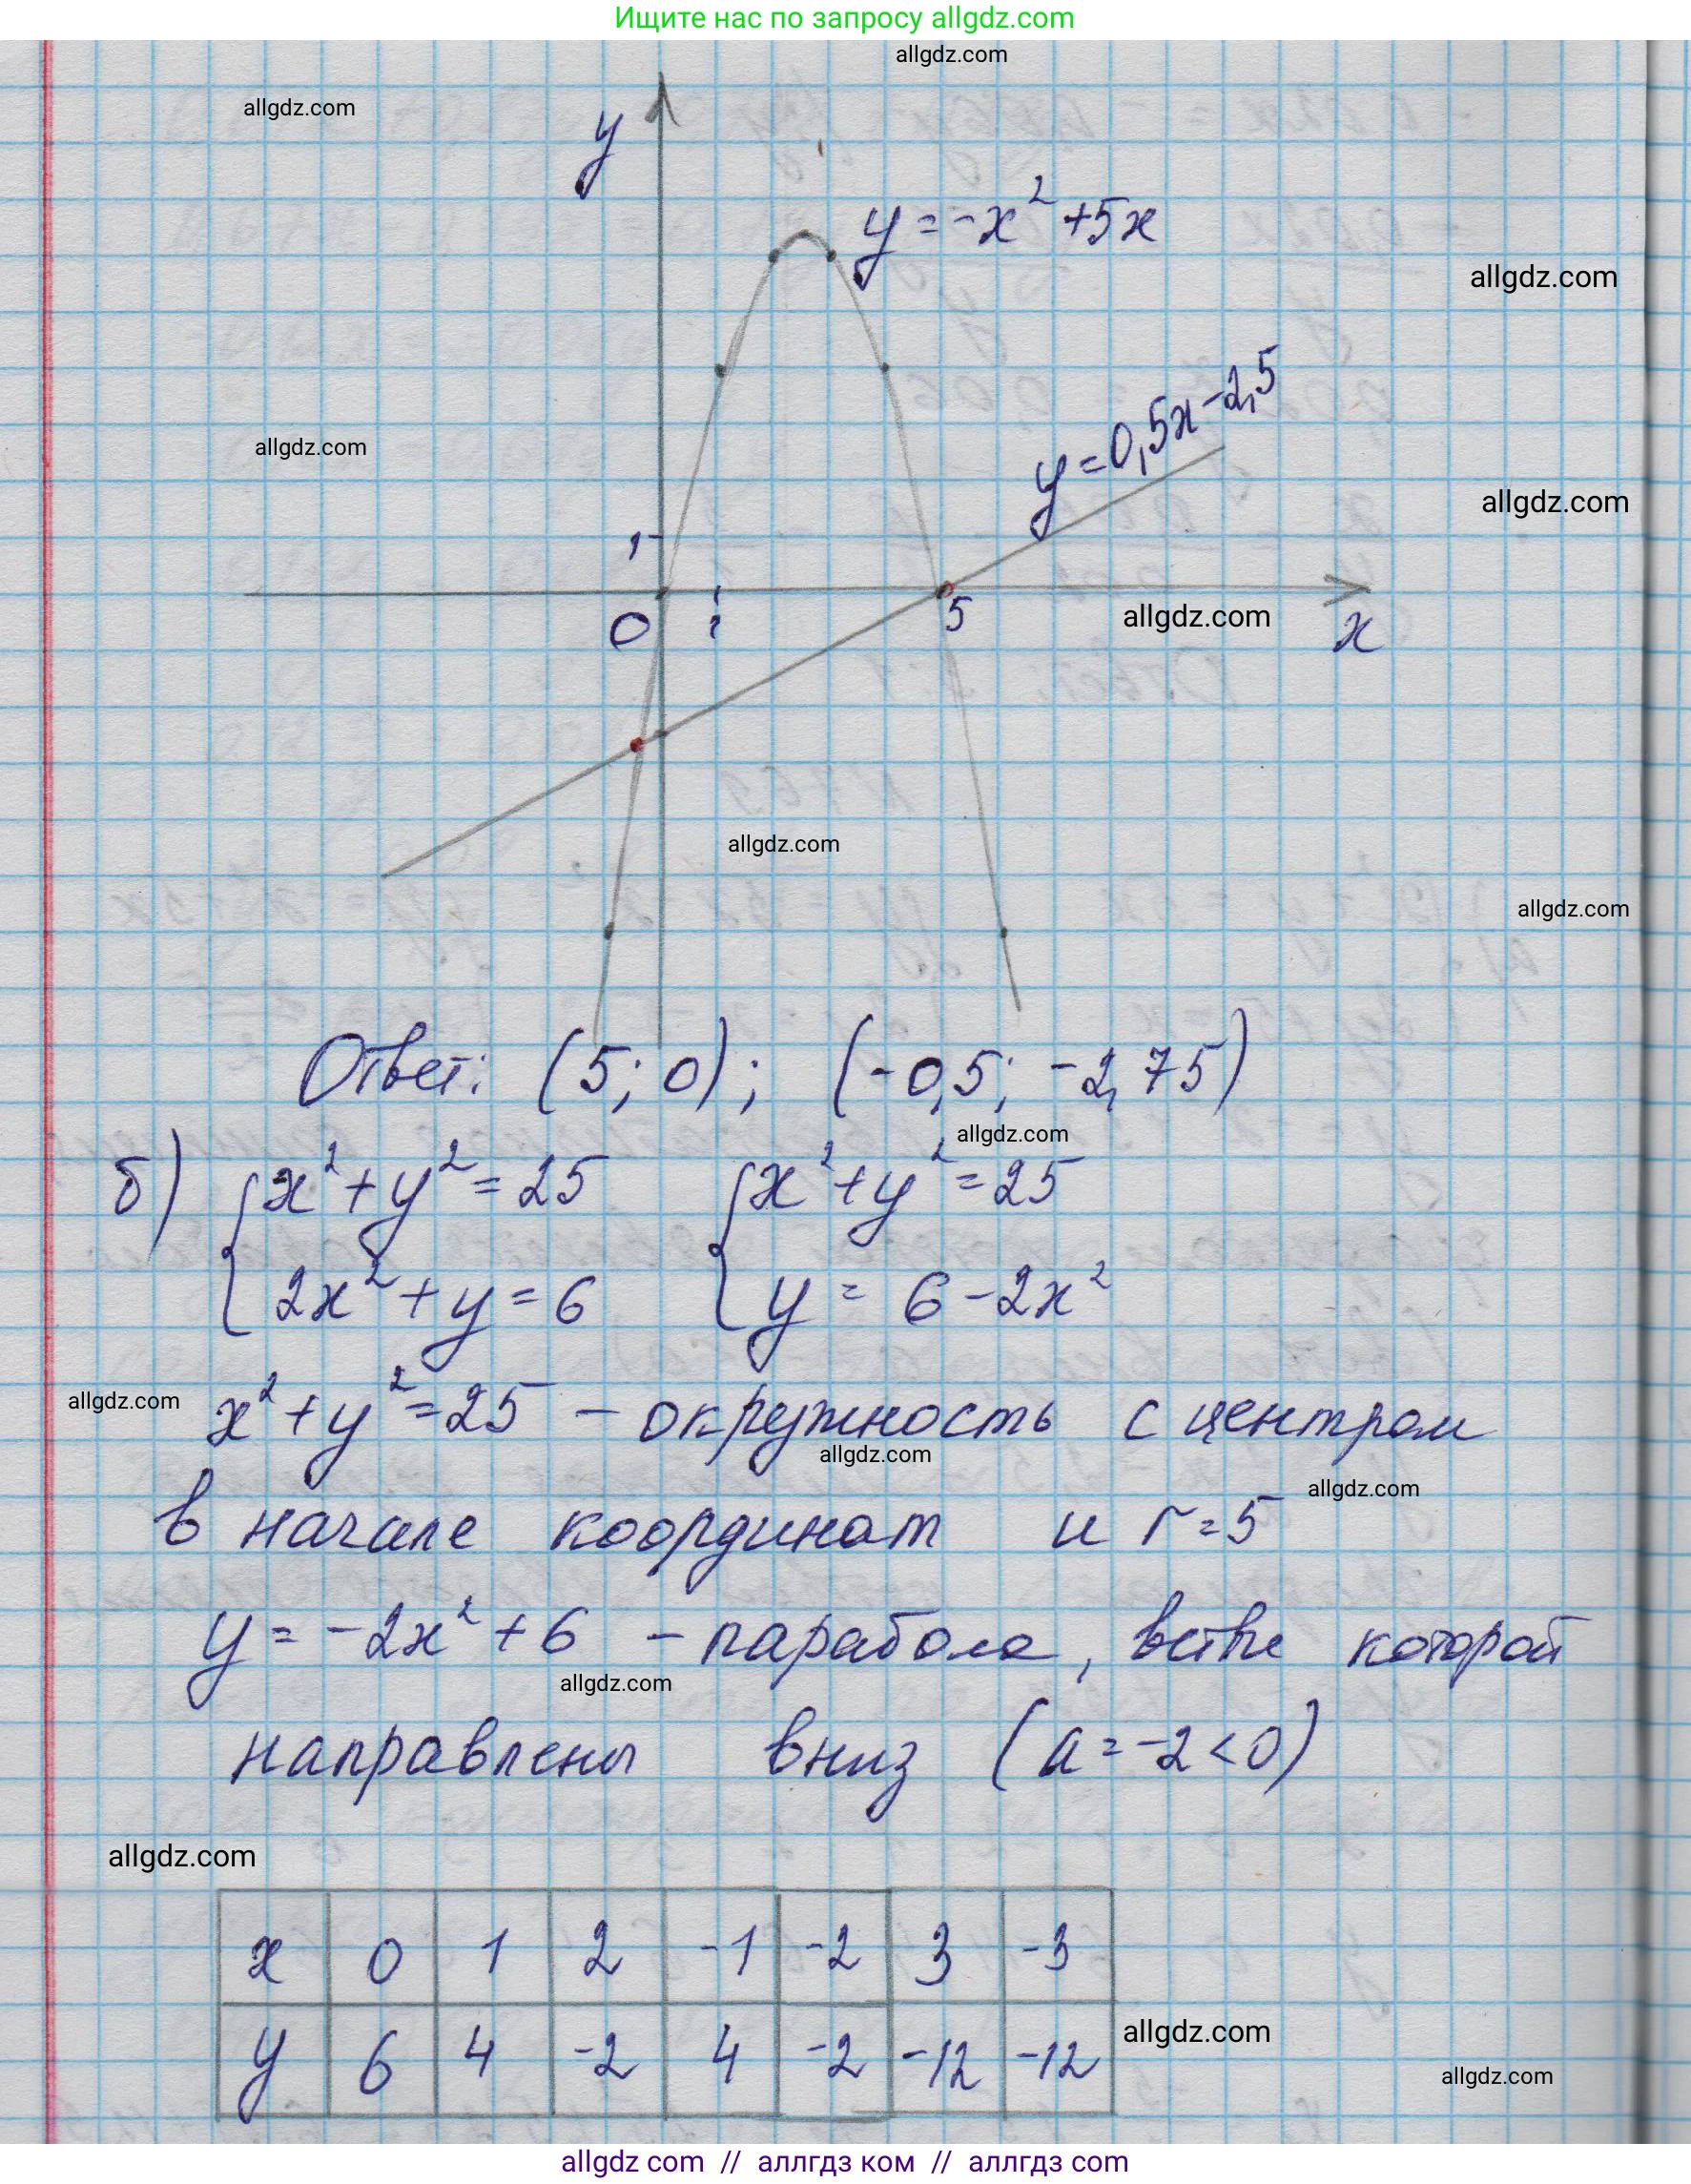 Ищите нас по запросу allgdz.com
allgdz.com
allgdz.com
y
y = -x² + 5x
allgdz.com
y = 0,5x - 2,5
allgdz.com
allgdz.com
1
0
1
5
allgdz.com
x
allgdz.com
allgdz.com
Ответ: (5; 0); (-0,5; -2,75)
allgdz.com
б) { x² + y² = 25 { x² + y² = 25
2x² + y = 6 y = 6 - 2x²
allgdz.com
x² + y² = 25 - окружность с центром
allgdz.com
allgdz.com
в начале координат и r = 5
y = -2x² + 6 - парабола, ветви которой
allgdz.com
направлены вниз (a = -2 < 0)
allgdz.com
x 0 1 2 -1 -2 3 -3
y 6 4 -2 4 -2 -12 -12
allgdz.com
allgdz.com
allgdz com // аллгдз ком // аллгз com